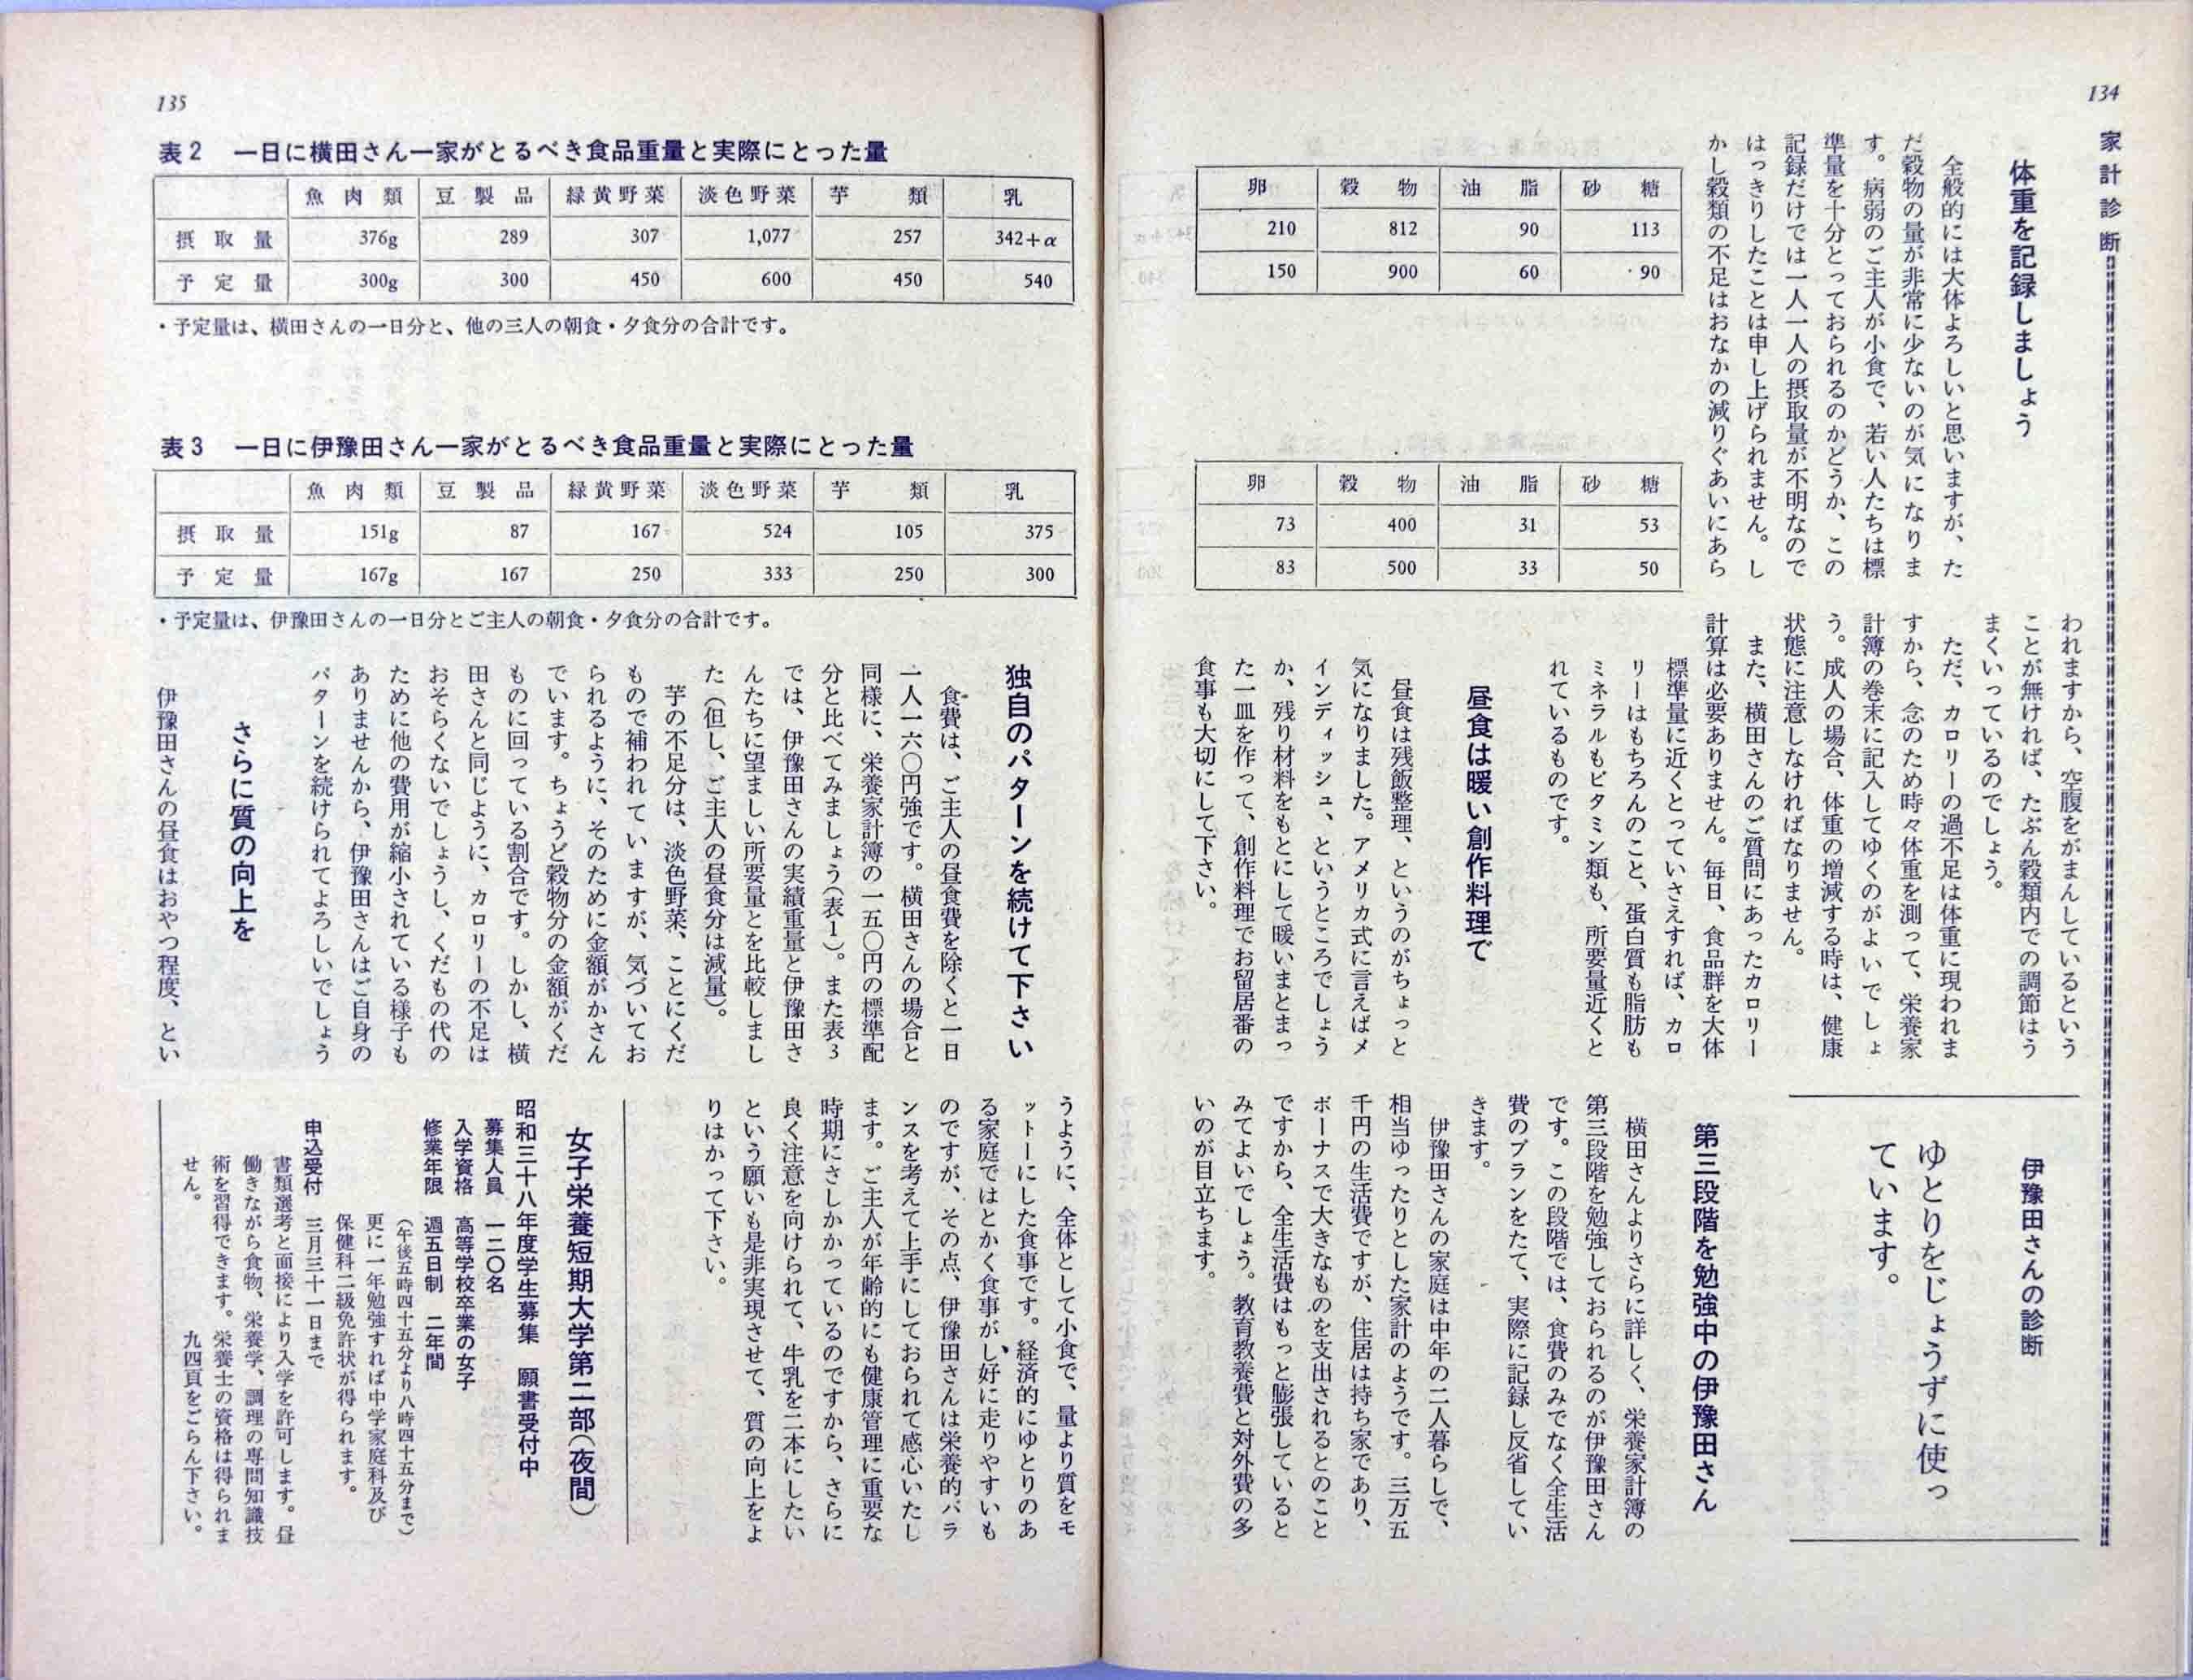 134
家計診断
体重を記録しましょう
全般的には大体よろしいと思いますが、た
だ穀物の量が非常に少ないのが気になりま
す。病弱のご主人が小食で、若い人たちは標
準量を十分とっておられるのかどうか、この
記録だけでは一人一人の摂取量が不明なので
はっきりしたことは申し上げられません。し
かし穀類の不足はおなかの減りぐあいにあら
卵 穀物 油脂 砂糖
210 812 90 113
150 900 60 90
卵 穀物 油脂 砂糖
73 400 31 53
83 500 33 50
われますから、空腹をがまんしているという
ことが無ければ、たぶん穀類内での調節はう
まくいっているのでしょう。
ただ、カロリーの過不足は体重に現われま
すから、念のため時々体重を測って、栄養家
計簿の巻末に記入してゆくのがよいでしょ
う。成人の場合、体重の増減する時は、健康
状態に注意しなければなりません。
また、横田さんのご質問にあったカロリー
計算は必要ありません。毎日、食品群を大体
標準量に近くとっていさえすれば、カロ
リーはもちろんのこと、蛋白質も脂肪も
ミネラルもビタミン類も、所要量近くと
れているものです。
昼食は暖い創作料理で
昼食は残飯整理、というのがちょっと
気になりました。アメリカ式に言えばメ
インディッシュ、というところでしょう
か、残り材料をもとにして暖いまとまっ
た一皿を作って、創作料理でお留居番の
食事も大切にして下さい。
伊豫田さんの診断
ゆとりをじょうずに使っ
ています。
第三段階を勉強中の伊豫田さん
横田さんよりさらに詳しく、栄養家計簿の
第三段階を勉強しておられるのが伊豫田さん
です。この段階では、食費のみでなく全生活
費のプランをたて、実際に記録し反省してい
きます。
伊豫田さんの家庭は中年の二人暮らしで、
相当ゆったりとした家計のようです。三万五
千円の生活費ですが、住居は持ち家であり、
ボーナスで大きなものを支出されるとのこと
ですから、全生活費はもっと膨張していると
みてよいでしょう。教育教養費と対外費の多
いのが目立ちます。
135
表2 一日に横田さん一家がとるべき食品重量と実際にとった量
魚肉類 豆製品 緑黄野菜 淡色野菜 芋類 乳
摂取量 376g 289 307 1,077 257 342+α
予定量 300g 300 450 600 450 540
・予定量は、横田さんの一日分と、他の三人の朝食・夕食分の合計です。
表3 一日に伊豫田さん一家がとるべき食品重量と実際にとった量
魚肉類 豆製品 緑黄野菜 淡色野菜 芋類 乳
摂取量 151g 87 167 524 105 375
予定量 167g 167 250 333 250 300
・予定量は、伊豫田さんの一日分とご主人の朝食・夕食分の合計です。
独自のパターンを続けて下さい
食費は、ご主人の昼食費を除くと一日
一人一六〇円強です。横田さんの場合と
同様に、栄養家計簿の一五〇円の標準配
分と比べてみましょう(表1)。また表3
では、伊豫田さんの実績重量と伊豫田さ
んたちに望ましい所要量とを比較しまし
た(但し、ご主人の昼食分は減量)。
芋の不足分は、淡色野菜、ことにくだ
もので補われていますが、気づいてお
られるように、そのために金額がかさん
でいます。ちょうど穀物分の金額がくだ
ものに回っている割合です。しかし、横
田さんと同じように、カロリーの不足は
おそらくないでしょうし、くだもの代の
ために他の費用が縮小されている様子も
ありませんから、伊豫田さんはご自身の
パターンを続けられてよろしいでしょう
さらに質の向上を
伊豫田さんの昼食はおやつ程度、とい
うように、全体として小食で、量より質をモ
ットーにした食事です。経済的にゆとりのあ
る家庭ではとかく食事がし好に走りやすいも
のですが、その点、伊豫田さんは栄養的バラ
ンスを考えて上手にしておられて感心いたし
ます。ご主人が年齢的にも健康管理に重要な
時期にさしかかっているのですから、さらに
良く注意を向けられて、牛乳を二本にしたい
という願いも是非実現させて、質の向上をよ
りはかって下さい。
女子栄養短期大学第二部(夜間)
昭和三十八年度学生募集 願書受付中
募集人員 一二〇名
入学資格 高等学校卒業の女子
修業年限 週五日制 二年間
(午後五時四十五分より八時四十五分まで)
更に一年勉強すれば中学家庭科及び
保健科二級免許状が得られます。
申込受付 三月三十一日まで
書類選考と面接により入学を許可します。昼
働きながら食物、栄養学、調理の専問知識技
術を習得できます。栄養士の資格は得られま
せん。 九四頁をごらん下さい。